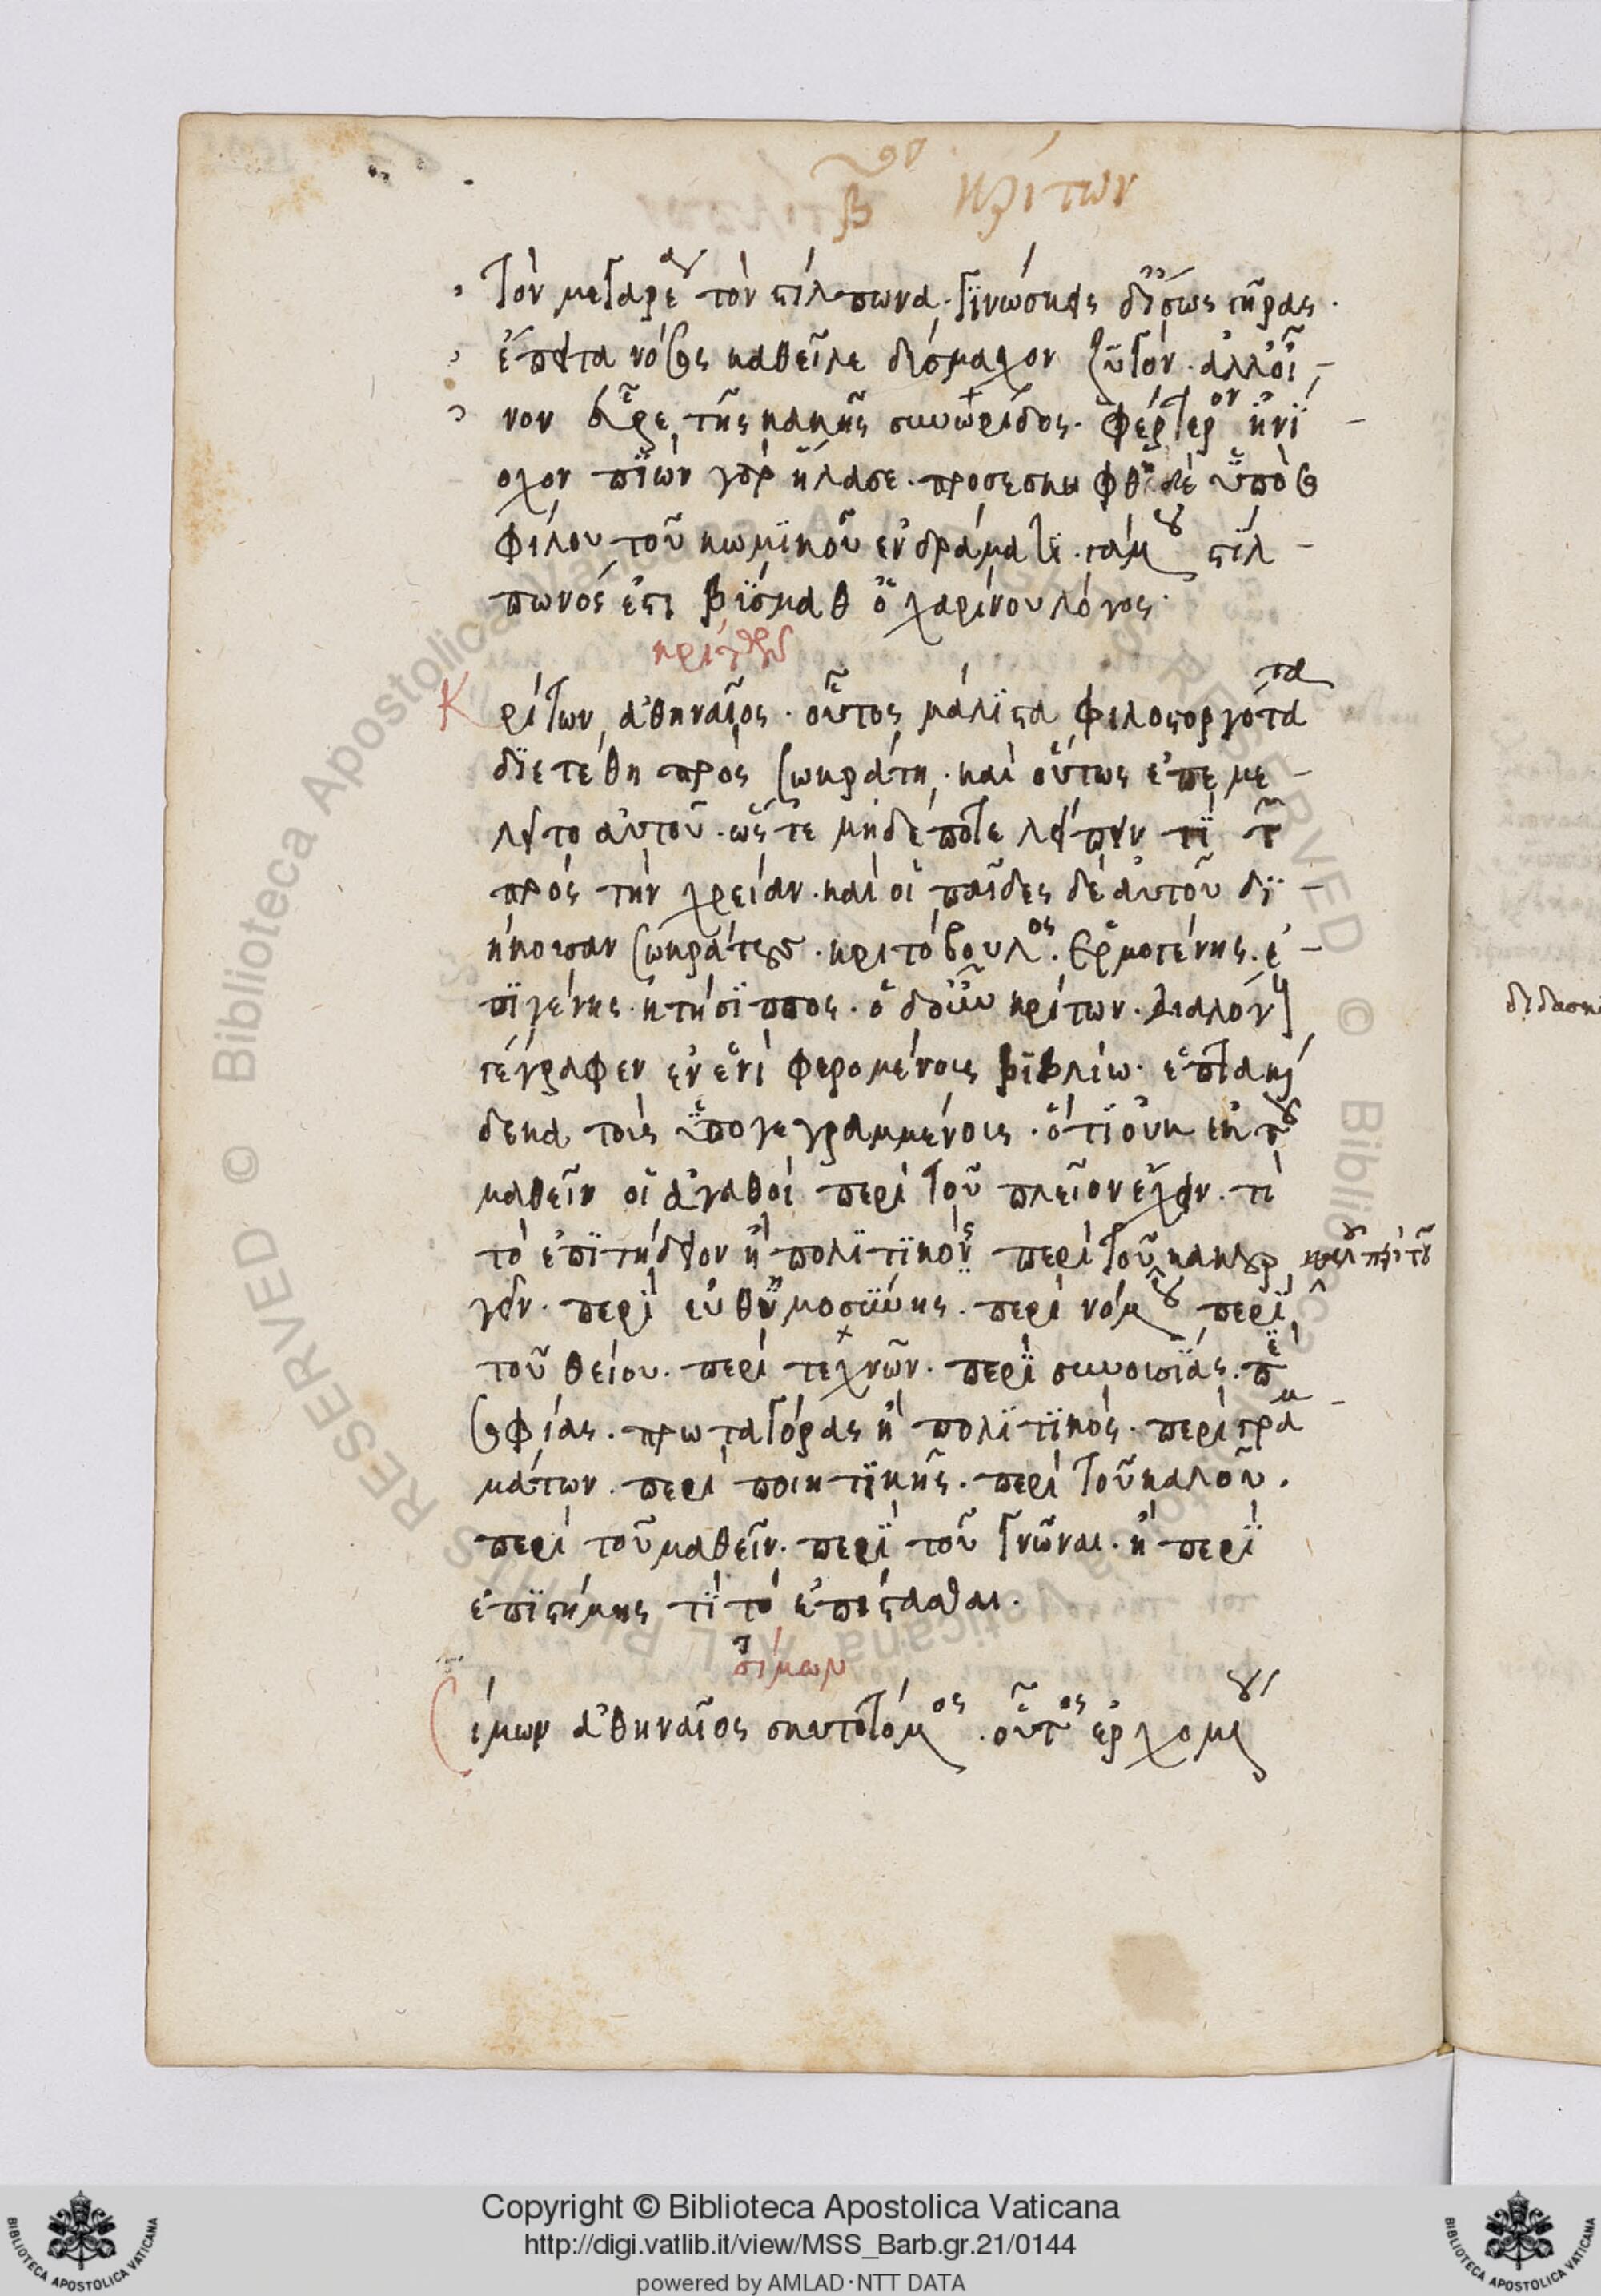 β^ον κρίτων
Τὸν μεγαρέα τὸν στίλπωνα. γϊνώσκεις δ' ἴσως γῆρας.
ἔπειτα νόσος καθεῖλε δύσμαχον ζυγόν. ἀλλ' οἶ
νον εὗρε, τῆς κακῆς συνωρίδος. φέρτερον ἡνϊ
οχον πϊὼν γὰρ ἤλασε. προσεσκώφθη δὲ ὑπὸ σο
φίλου τοῦ κωμϊκοῦ ἐν δράματϊ. γάμου στϊλ
πωνός ἐστι βϊσμαθ ὁ χαρίνου λόγος.
κρίτων
Κρίτων, ἀθηναῖος. οὗτος μάλϊστα φιλοστοργότατα
δϊετέθη πρὸς σωκράτη. καὶ οὕτως ἐπεμε
λεῖτο αὐτοῦ. ὥστε μηδέποτε λείπειν τϊ τῶν
πρὸς τὴν χρείαν. καὶ οἱ παῖδες δὲ αὐτοῦ δϊ
ήκουσαν σωκράτους. κριτόβουλος. ἑρμογένης. ἐ
πϊγένης. κτήσϊππος. ὁ δ' οὖν κρίτων. διαλόγους
γέγραφεν ἐν ἑνὶ φερομένοις βϊβλίω. ἑπτακαί
δεκα τοὺς ὑπογεγραμμένους. ὅτϊ οὐκ ἐκ τοῦ
μαθεῖν οἱ ἀγαθοί περὶ τοῦ πλεῖον ἔχειν. τί
τὸ ἐπϊτήδειον ἢ πολϊτϊκός περὶ τοῦ κακουρ
γεῖν. περὶ εὐθημοσύνης. περὶ νόμου περὶ
τοῦ θείου. περὶ τεχνῶν. περὶ συνουσϊάς. περὶ
σοφίας. πρωταγόρας ἢ πολϊτϊκός. περὶ γραμ
μάτων. περὶ ποιητϊκῆς. περὶ τοῦ καλοῦ.
περὶ τοῦ μαθεῖν. περὶ τοῦ γνῶναι. ἢ περὶ
ἐπϊστήμης τί τὸ ἐπίστασθαι.
σίμων
Σίμων ἀθηναῖος σκυτοτόμος. οὗτος ἐρχομένου
Copyright © Biblioteca Apostolica Vaticana
http://digi.vatlib.it/view/MSS_Barb.gr.21/0144
powered by AMLAD·NTT DATA